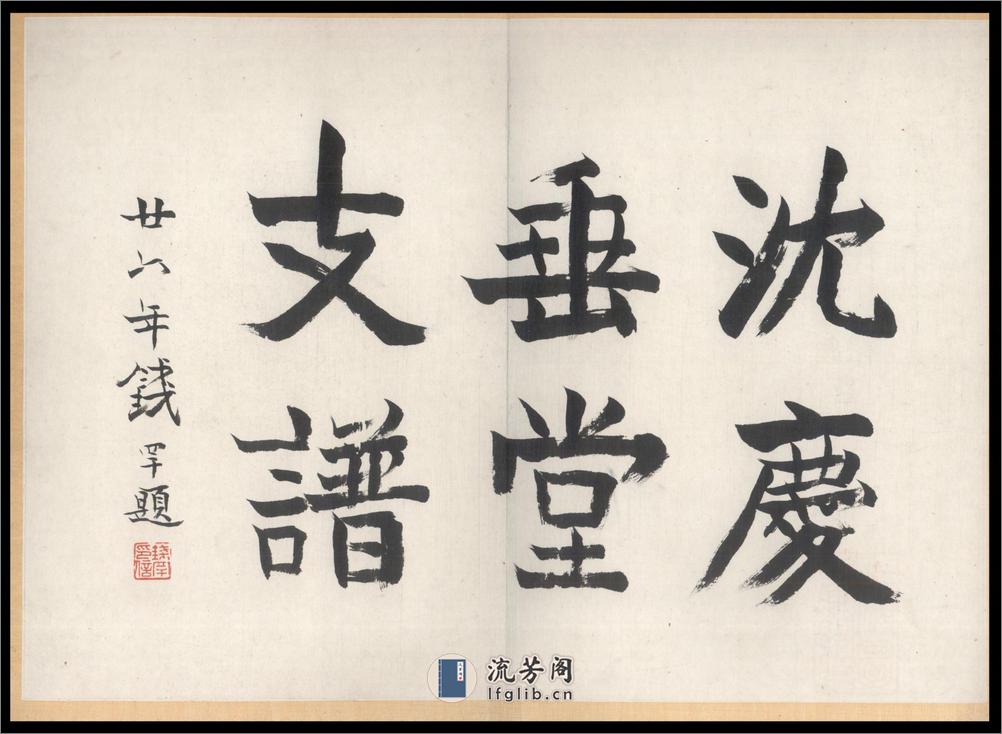 沈慶
垂堂
支譜
廿六年錢罕題
錢罕印信
流芳阁
lfglib.cn